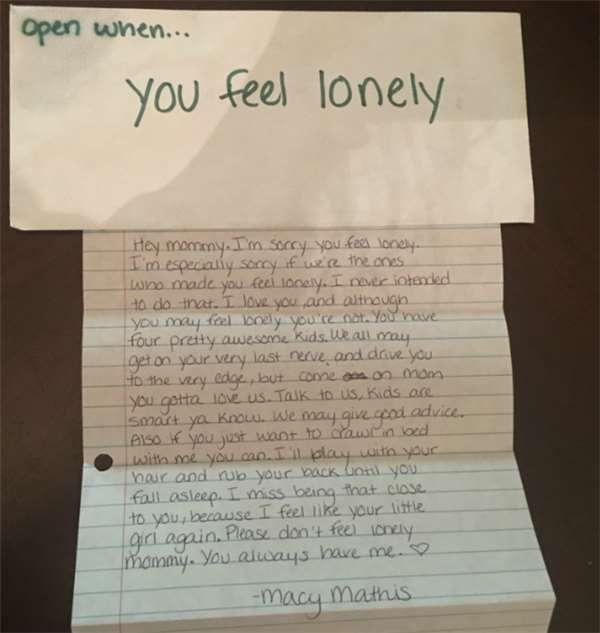 open when...
you feel lonely
Hey mommy. I'm sorry you feel lonely.
I'm especially sorry if we're the ones
who made you feel lonely. I never intended
to do that. I love you, and although
you may feel lonely you're not. You have
four pretty awesome kids. We all may
get on your very last nerve, and drive you
to the very edge, but come on mom
you gotta love us. Talk to us, kids are
smart ya know. We may give good advice.
Also if you just want to crawl in bed
with me you can. I'll play with your
hair and rub your back until you
fall asleep. I miss being that close
to you, because I feel like your little
girl again. Please don't feel lonely
mommy. You always have me. ♡
-Macy Mathis